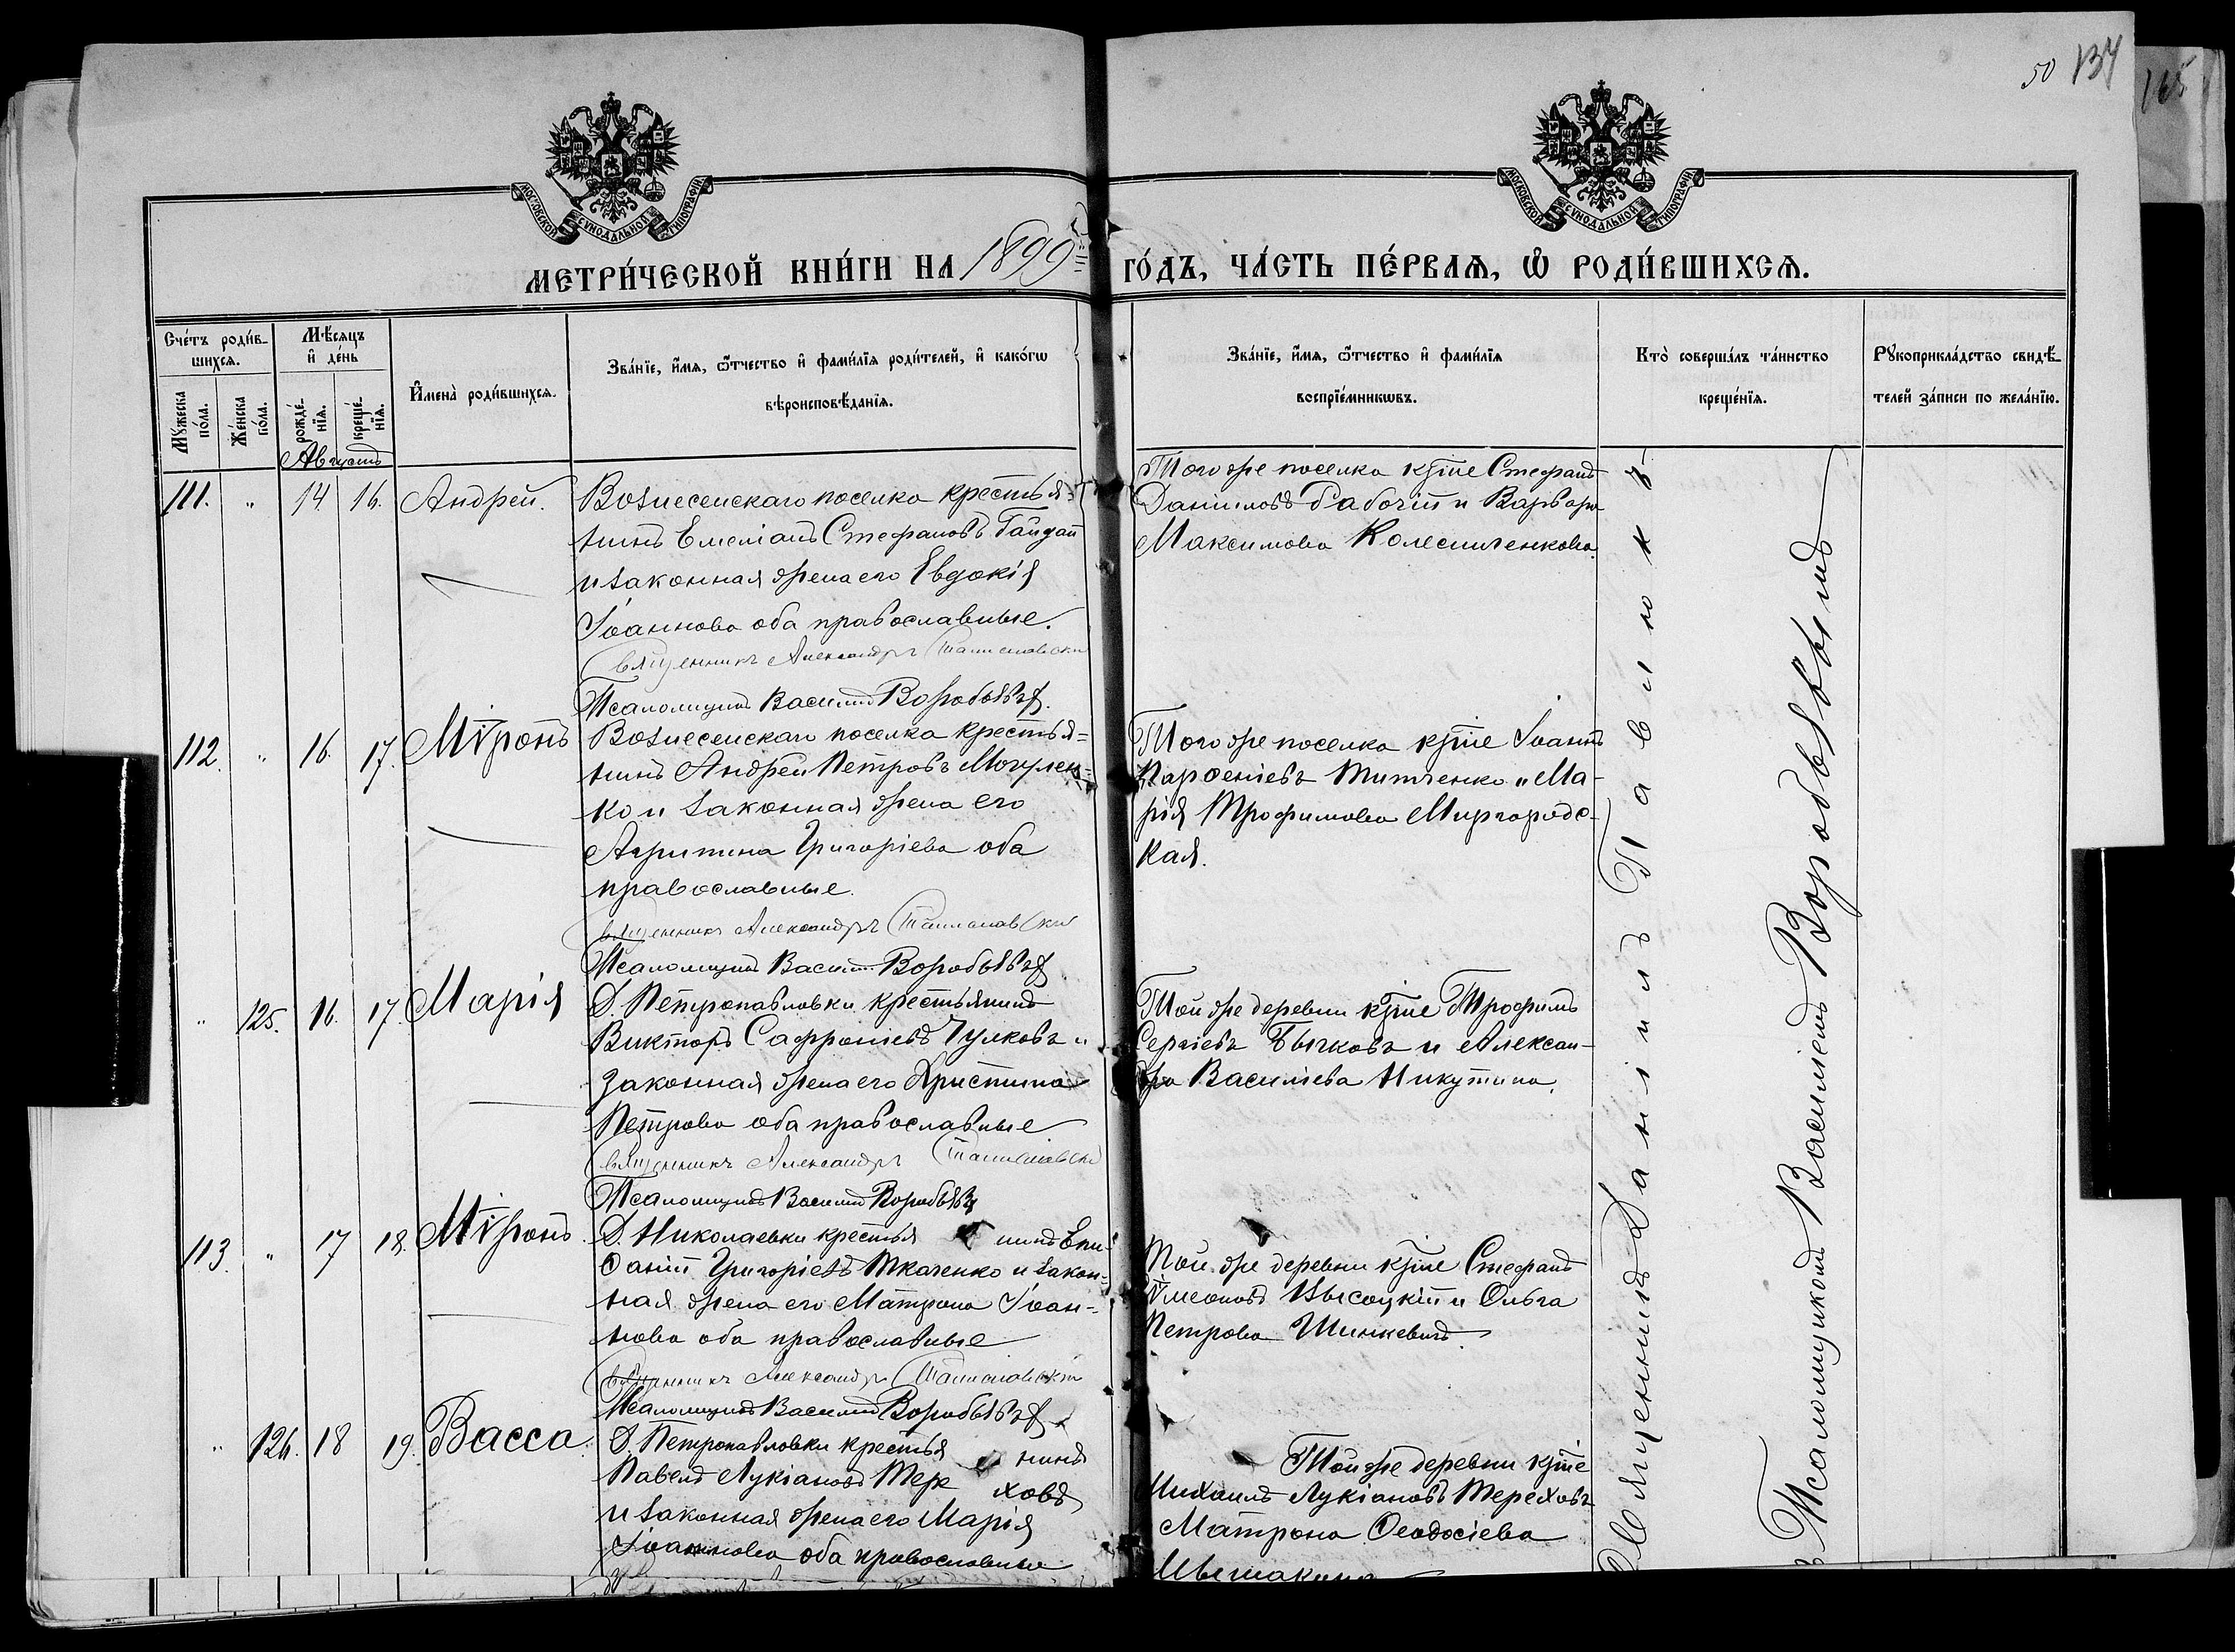 50 134
165
МОСКОВСКОЙ СѴНОДАЛЬНОЙ ТИПОГРАФІИ
МОСКОВСКОЙ СѴНОДАЛЬНОЙ ТИПОГРАФІИ
МЕТРИ́ЧЕСКОЙ КНИ́ГИ НА 1899 ГО́ДЪ, ЧА́СТЬ ПЕ́РВАѦ, Ѡ҆ РОДИ́ВШИХСѦ.
Сче́тъ роди́в-
шихсѧ.
Мꙋ́жеска по́ла.
Же́нска по́ла.
Мѣ́сѧцъ и҆ де́нь
рожде́-нїѧ.
креще́-нїѧ.
И҆мена̀ роди́вшихсѧ.
Зва́нїе, и҆́мѧ, ѻ҆́тчество и҆ фами́лїѧ роди́телей, и҆ како́гѡ
вѣроисповѣ́данїѧ.
Зва́нїе, и҆́мѧ, ѻ҆́тчество и҆ фами́лїѧ
воспрїе́мникѡвъ.
Кто̀ соверша́лъ та́инство
креще́нїѧ.
Рꙋкоприкла́дство свидѣ́-
телей за́писи по жела́нїю.
Августъ
111. " 14 16. Андрей.
Вознесенскаго поселка крестья-
нинъ Емеліанъ Стефановъ Гайдай
и законная жена его Евдокія
Іоаннова оба православные.
Священникъ Александръ
Псаломщикъ Василій Воробьевъ
Того же поселка кр-не Стефанъ
Даниловъ Рабочій и Варвара
Максимова Колесниченкова.
112. " 16. 17. Міронъ
Вознесенскаго поселка крестья-
нинъ Андрей Петровъ Могулен-
ко и законная жена его
Агрипина Григоріева оба
православные.
Священникъ Александръ
Псаломщикъ Василій Воробьевъ
Того же поселка кр-не Іоаннъ
Парѳеніевъ Титченко и Ма-
рія Трофимова Миргородс-
кая.
" 125. 16. 17. Марія
Д. Петропавловки крестьянинъ
Викторъ Сафроніевъ Чулковъ и
законная жена его Христина
Петрова оба православные
Священникъ Александръ
Псаломщикъ Василій Воробьевъ
Той же деревни кр-не Трофимъ
Сергіевъ Бычковъ и Алексан-
дра Василіева Никутина.
113. " 17 18. Міронъ
Д. Николаевки крестья нинъ Епи-
ѳаній Григоріевъ Ткаченко и закон-
ная жена его Матрона Іоан-
нова оба православные
Священникъ Александръ
Псаломщикъ Василій Воробьевъ
Той же деревни кр-не Стефанъ
Симеоновъ Высоцкій и Ольга
Петрова Шинкевичъ.
" 126. 18 19. Васса
Д. Петропавловки крестья нинъ
Павелъ Лукіановъ Тере ховъ
и законная жена его Марія
Іоаннова оба православные
Той же деревни кр-не
Михаилъ Лукіановъ Тереховъ
Матрона Ѳеодосіева
Мышакина
Священникъ Даніилъ Павлюкъ
съ Псаломщикомъ Василіемъ Воробьевымъ